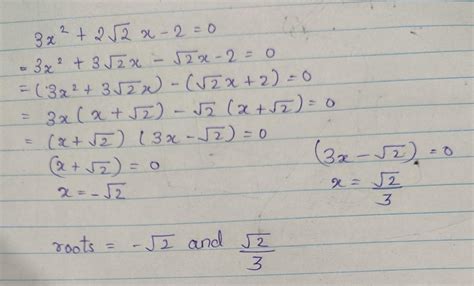 3x² + 2√2 x - 2 = 0
= 3x² + 3√2x - √2x - 2 = 0
= (3x² + 3√2x) - (√2x + 2) = 0
= 3x (x + √2) - √2 (x + √2) = 0
= (x + √2) (3x - √2) = 0
(x + √2) = 0
x = -√2
(3x - √2) = 0
x = √2/3
roots = -√2 and √2/3